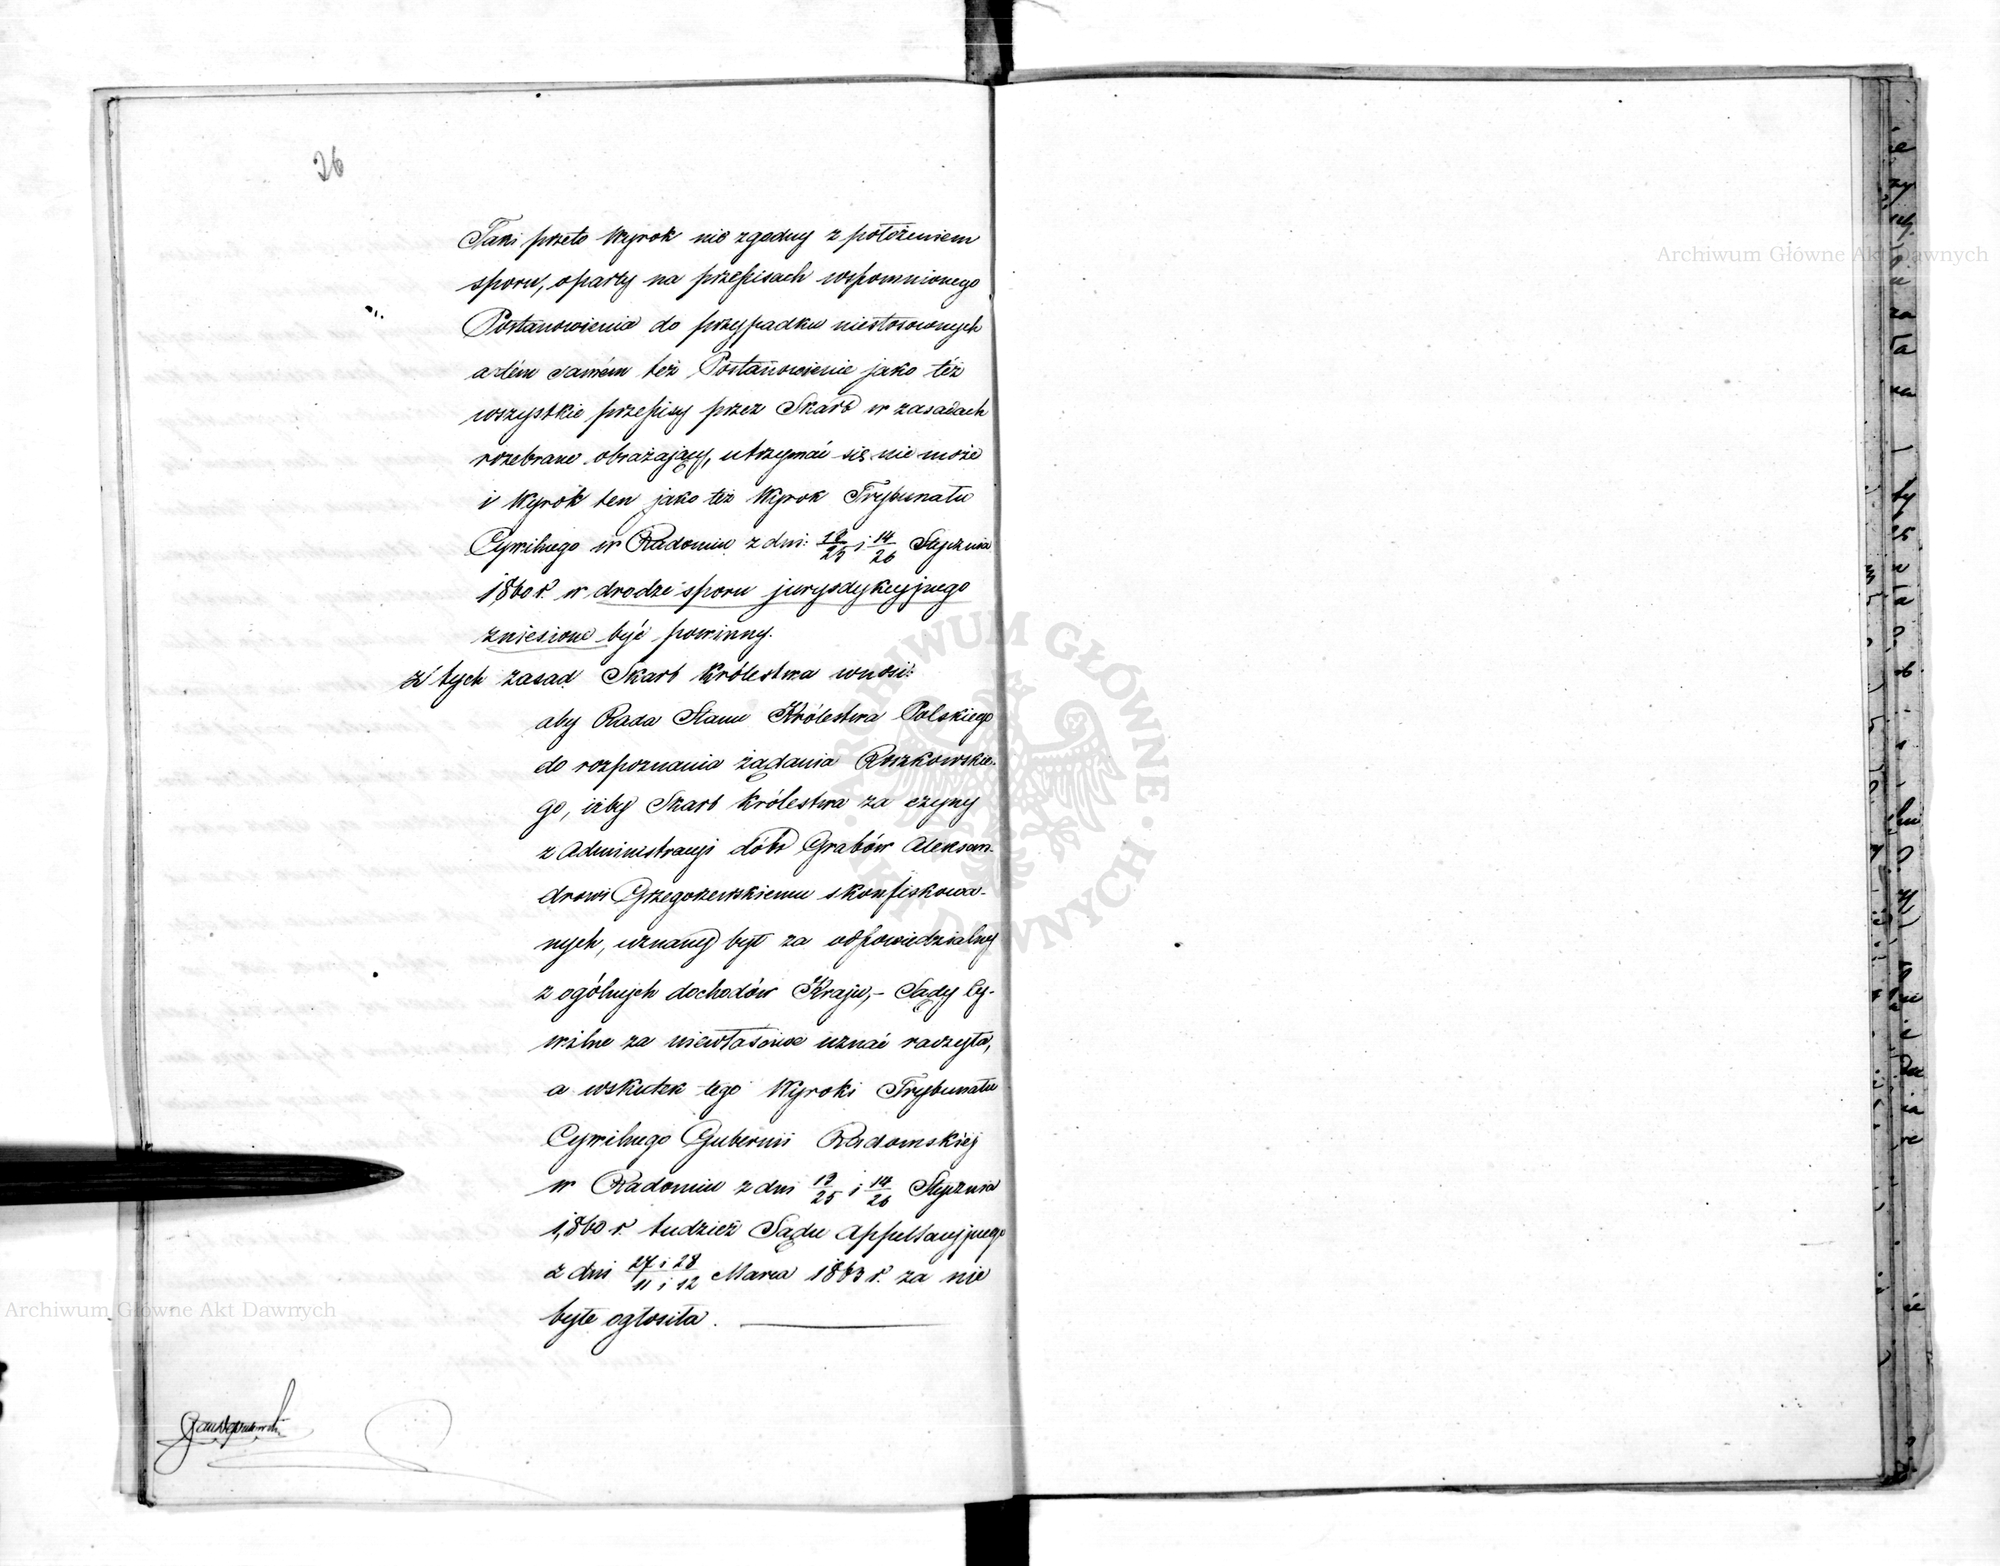 26
Taki przeto Wyrok nie zgodny z położeniem
sporu, oparty na przepisach wspomnionego
Postanowienia do przypadku niestosownych
a tém samém też Postanowienie jako też
wszystkie przepisy przez Skarb w zasadach
rozebrane obrażający, utrzymać się nie może
i Wyrok ten jako też Wyrok Trybunału
Cywilnego w Radomiu z dni: 13/25 i 14/26 Stycznia
1860 r. w drodze sporu jurysdykcyjnego
zniesione być powinny.
Z tych zasad Skarb Królestwa wnosi:
aby Rada Stanu Królestwa Polskiego
do rozpoznania żądania Ruszkowskie-
go, iżby Skarb Królestwa za czyny
z Administracyi dóbr Grabów Aleksan-
drowi Grzegorzewskiemu skonfiskowa-
nych, uznany był za odpowiedzialny
z ogólnych dochodów Kraju,- Sądy Cy-
wilne za niewłaściwe uznać raczyła,
a wskutek tego Wyroki Trybunału
Cywilnego Gubernii Radomskiej
w Radomiu z dni 13/25 i 14/26 Stycznia
1860 r. tudzież Sądu Appellacyjnego
z dni 27 i 28/11 i 12 Marca 1863 r. za nie
byłe ogłosiła.
Archiwum Główne Akt Dawnych
Archiwum Główne Akt Dawnych
ARCHIWUM GŁÓWNE AKT DAWNYCH